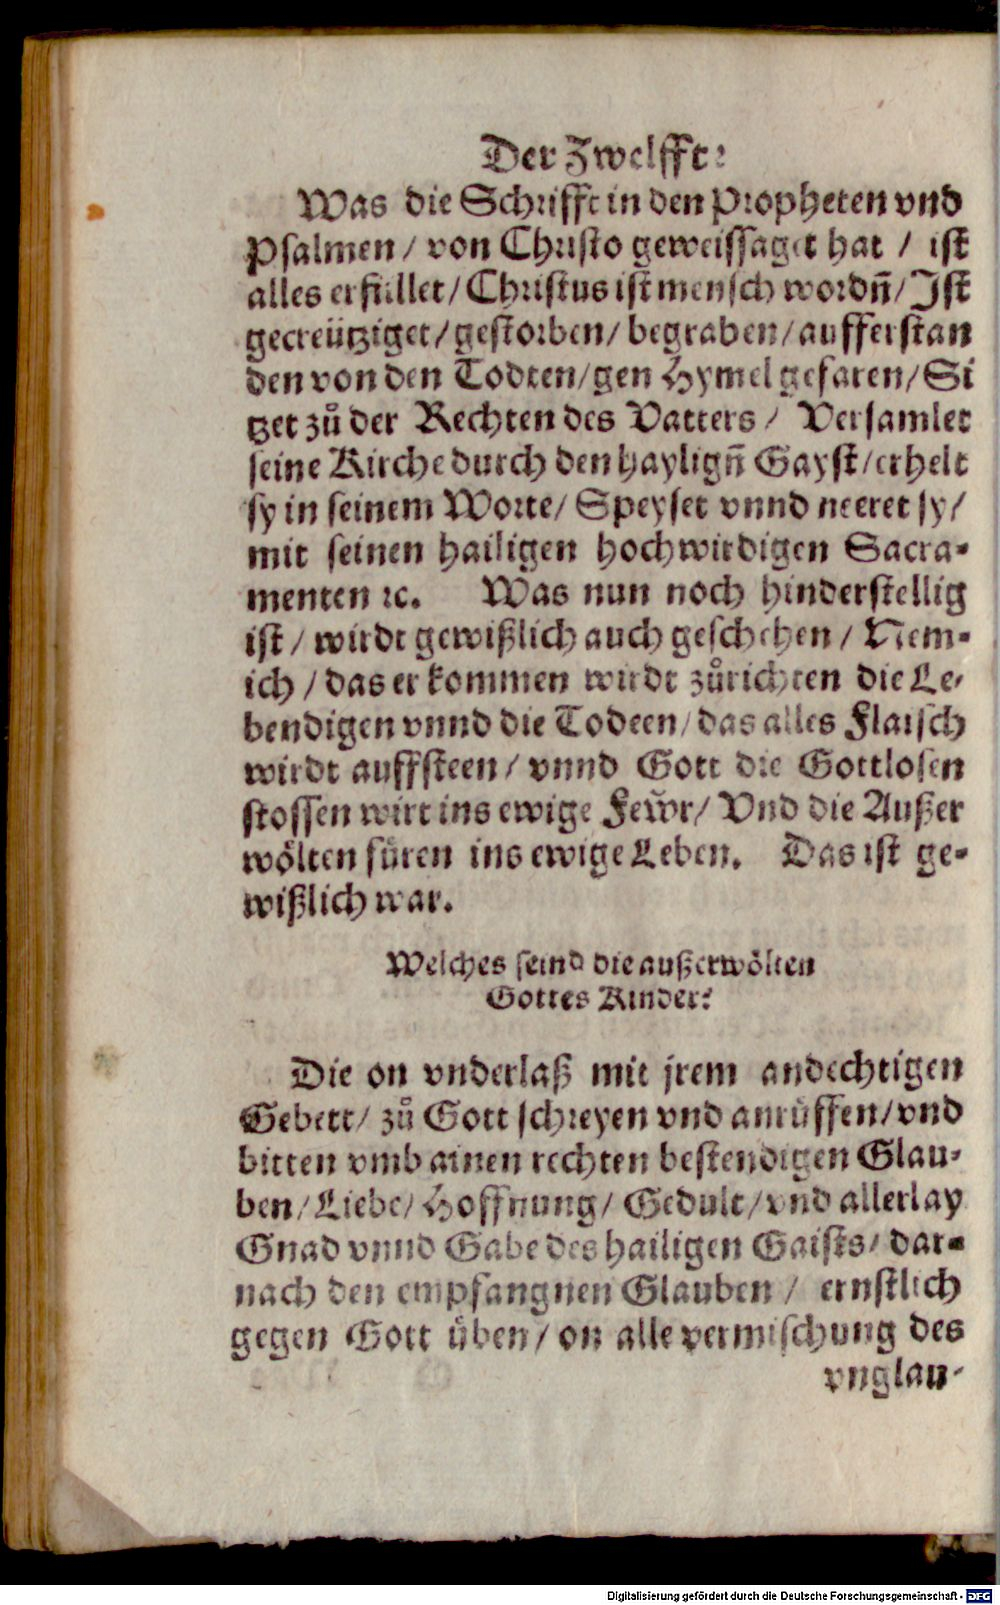 Der Zwelfft:
Was die Schrifft in den Propheten vnd
Psalmen / von Christo geweissaget hat / ist
alles erfüllet / Christus ist mensch wordn̄ / Ist
gecreütziget / gestorben / begraben / aufferstan
den von den Todten / gen Hymel gefaren / Si
tzet zů der Rechten des Vatters / Versamlet
seine Kirche durch den haylign̄ Gayst / erhelt
sy in seinem Worte / Speyset vnnd neeret sy /
mit seinen hailigen hochwirdigen Sacra-
menten ꝛc. Was nun noch hinderstellig
ist / wirdt gewißlich auch geschehen / Nem-
ich / das er kommen wirdt zůrichten die Le-
bendigen vnnd die Todeen / das alles Flaisch
wirdt auffsteen / vnnd Gott die Gottlosen
stossen wirt ins ewige Fewͤr / Vnd die Außer
woͤlten füren ins ewige Leben. Das ist ge-
wißlich war.
Welches seind die außerwoͤlten
Gottes Kinder?
Die on vnderlaß mit jrem andechtigen
Gebett / zů Gott schreyen vnd anrüffen / vnd
bitten vmb ainen rechten bestendigen Glau-
ben / Liebe / Hoffnung / Gedult / vnd allerlay
Gnad vnnd Gabe des hailigen Gaists / dar-
nach den empfangnen Glauben / ernstlich
gegen Gott üben / on alle vermischung des
vnglau-
Digitalisierung gefördert durch die Deutsche Forschungsgemeinschaft - DFG